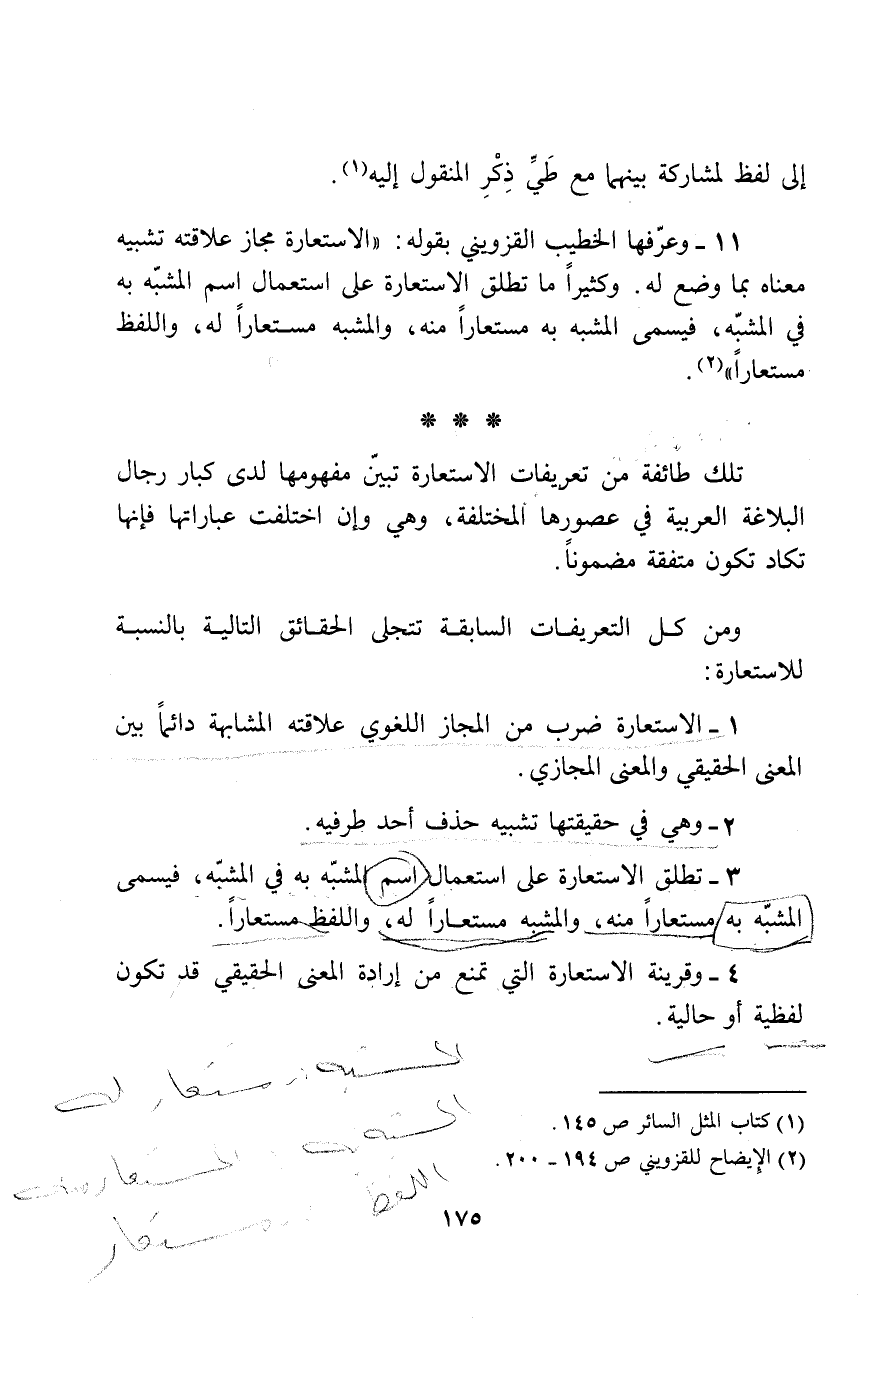 إلى لفظ لمشاركة بينهما مع طَيِّ ذِكْرِ المنقول إليه(١).
١١ - وعرّفها الخطيب القزويني بقوله: «الاستعارة مجاز علاقته تشبيه
معناه بما وضع له. وكثيراً ما تطلق الاستعارة على استعمال اسم المشبّه به
في المشبّه، فيسمى المشبه به مستعاراً منه، والمشبه مستعاراً له، واللفظ
مستعاراً»(٢).
* * *
تلك طائفة من تعريفات الاستعارة تبيّن مفهومها لدى كبار رجال
البلاغة العربية في عصورها المختلفة، وهي وإن اختلفت عباراتها فإنها
تكاد تكون متفقة مضموناً.
ومن كل التعريفات السابقة تتجلى الحقائق التالية بالنسبة
للاستعارة:
١ - الاستعارة ضرب من المجاز اللغوي علاقته المشابهة دائماً بين
المعنى الحقيقي والمعنى المجازي.
٢ - وهي في حقيقتها تشبيه حذف أحد طرفيه.
٣ - تطلق الاستعارة على استعمال اسم المشبّه به في المشبّه، فيسمى
المشبّه به مستعاراً منه، والمشبه مستعاراً له، واللفظ مستعاراً.
٤ - وقرينة الاستعارة التي تمنع من إرادة المعنى الحقيقي قد تكون
لفظية أو حالية.
المشبه : مستعار له
المشبه به : المستعار منه
اللفظ : مستعار
(١) كتاب المثل السائر ص ١٤٥.
(٢) الإيضاح للقزويني ص ١٩٤ - ٢٠٠.
١٧٥